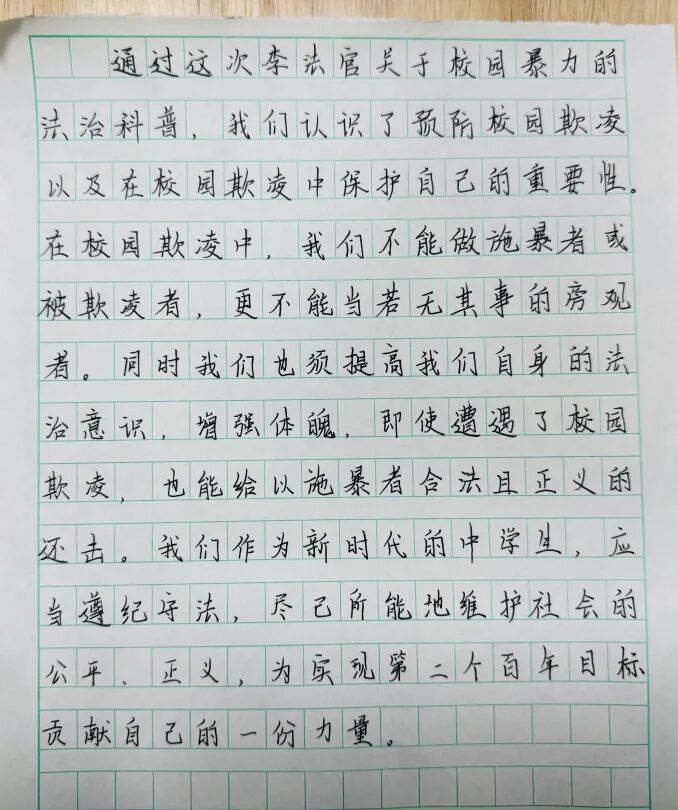 通过这次李法官关于校园暴力的
法治科普，我们认识了预防校园欺凌
以及在校园欺凌中保护自己的重要性。
在校园欺凌中，我们不能做施暴者或
被欺凌者，更不能当若无其事的旁观
者。同时我们也须提高我们自身的法
治意识，增强体魄，即使遭遇了校园
欺凌，也能给以施暴者合法且正义的
还击。我们作为新时代的中学生，应
当遵纪守法，尽己所能地维护社会的
公平、正义，为实现第二个百年目标
贡献自己的一份力量。